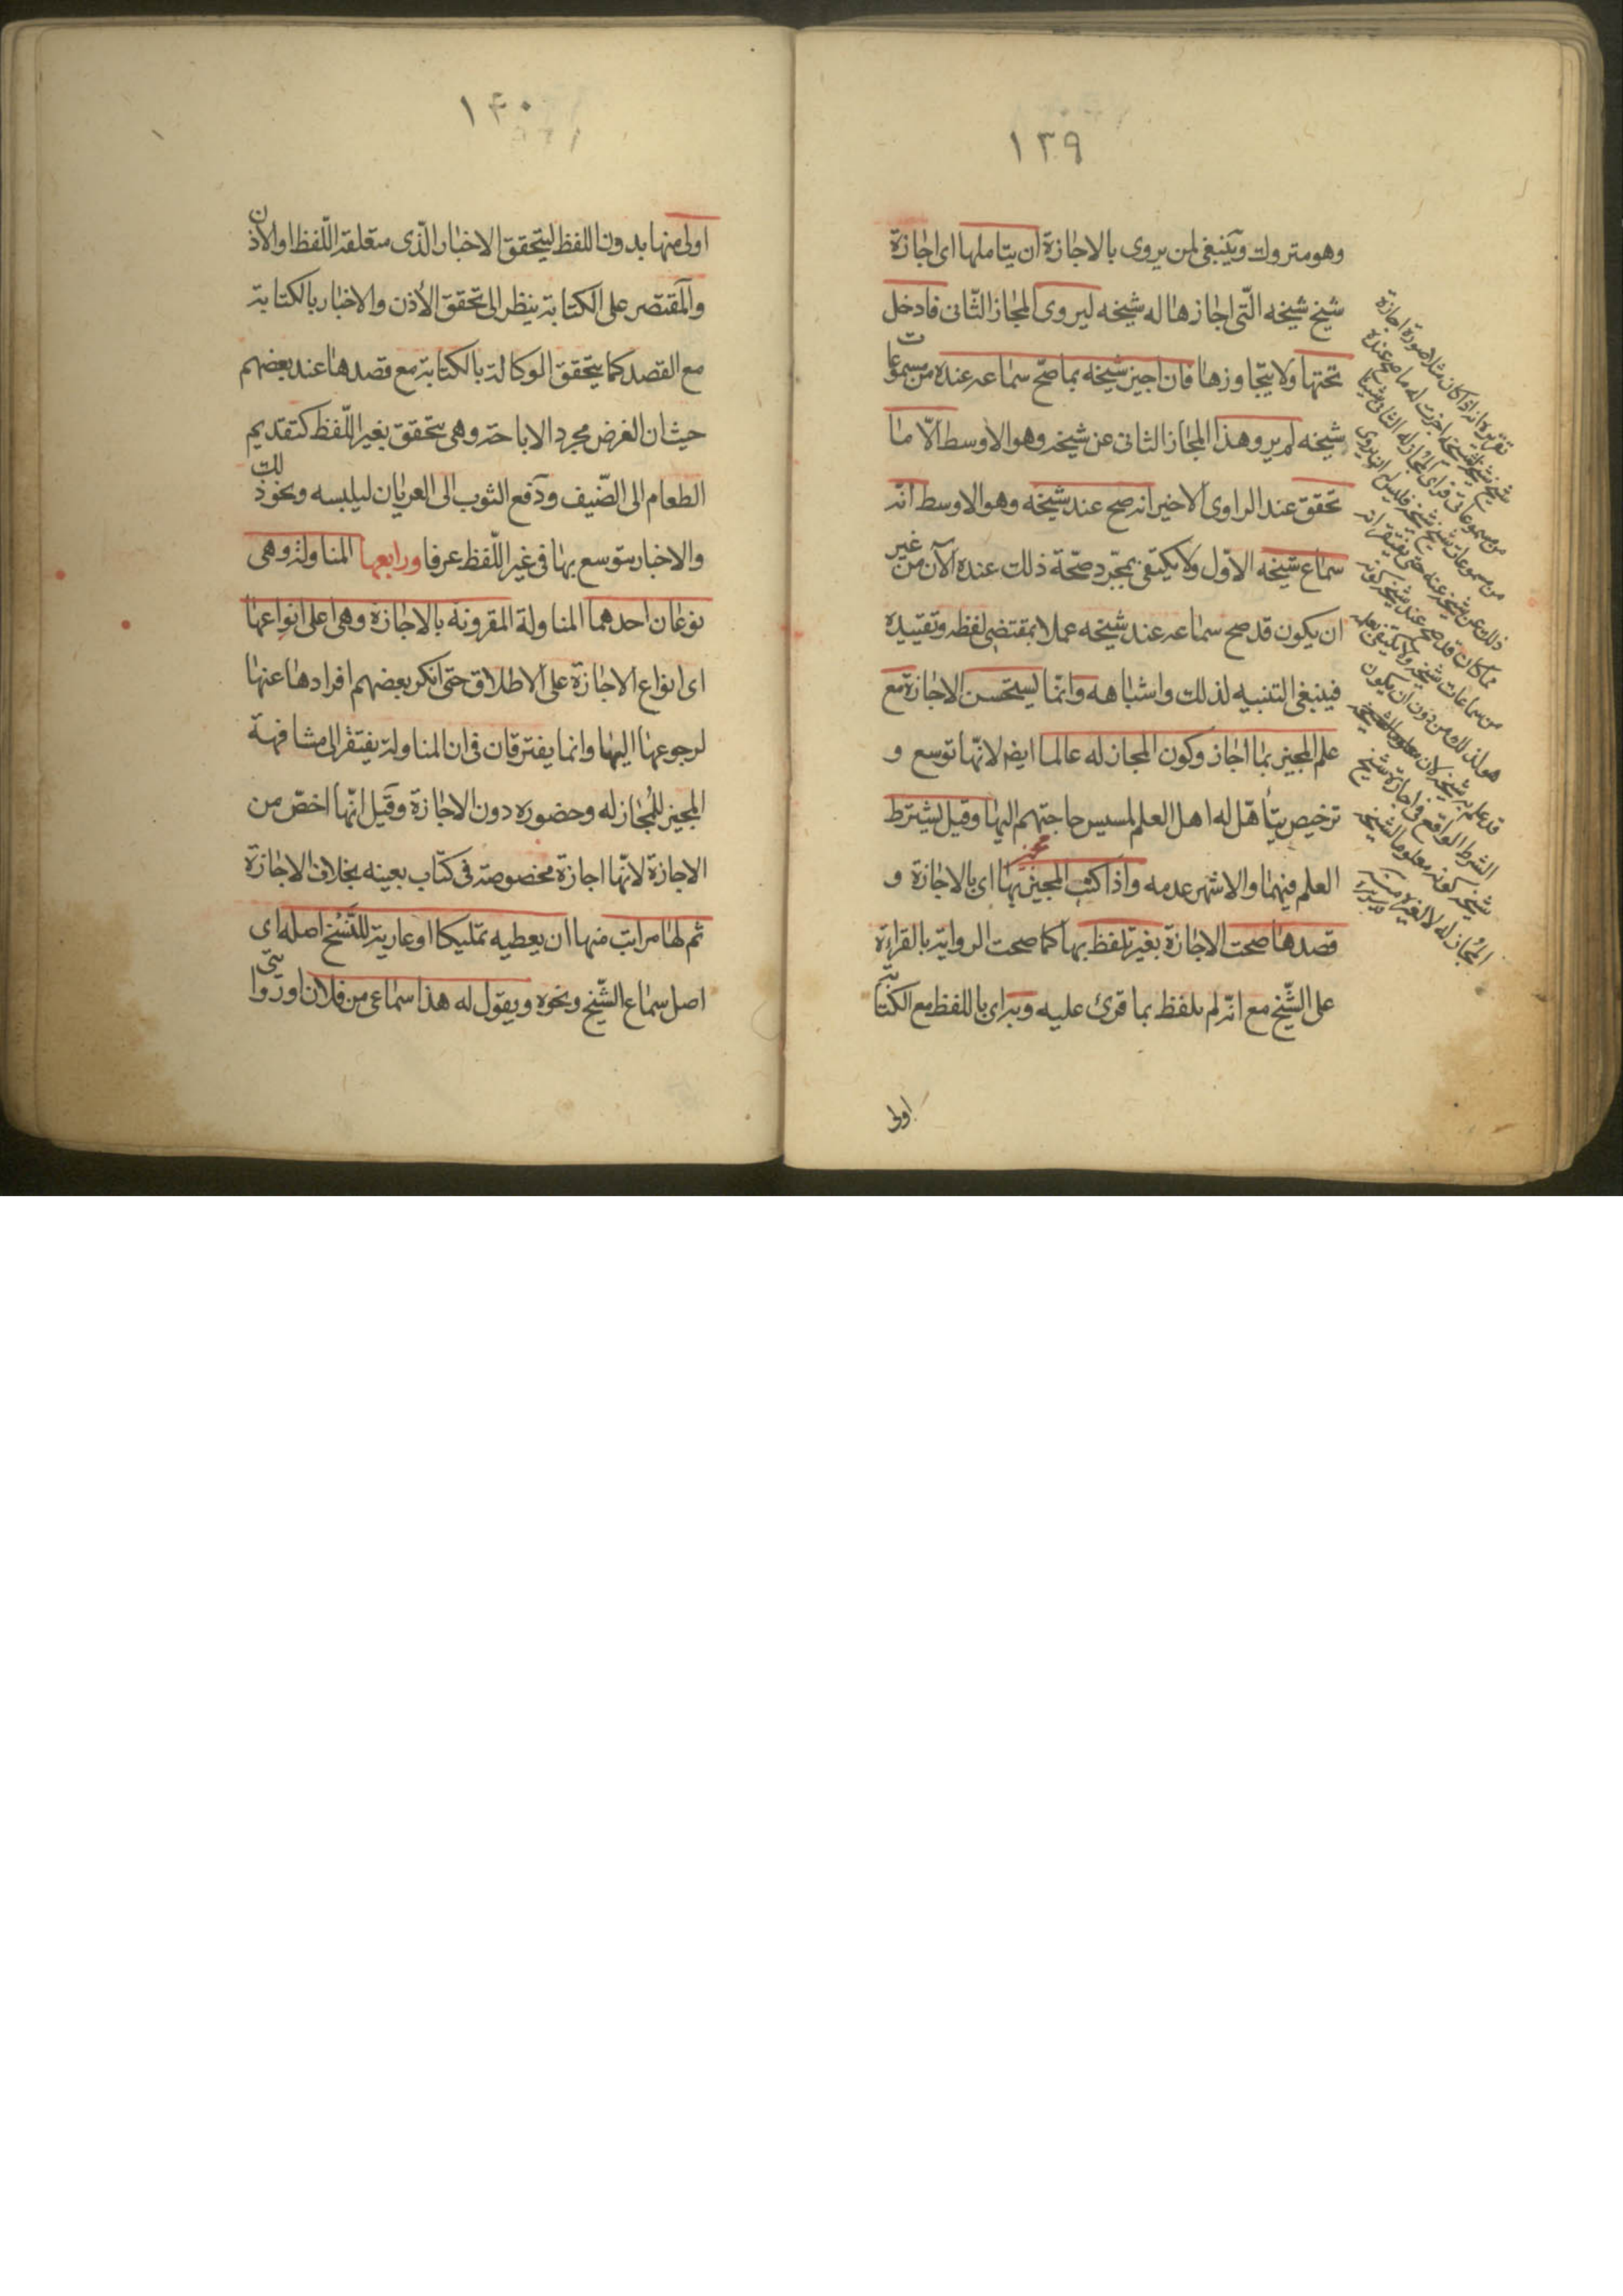 ١٣٩
وهو متروك وينبغى لمن يروى بالاجازة ان يتاملها اى اجازة
شيخ شيخه الّتى اجازها له شيخه ليروى المجاز الثّانى فادخل
تحتها ولا يتجاوزها فان اجيز شيخه بما صّح سماعه عنده من مسموعات
شيخه لم يرو هذا المجاز الثانى عن شيخه وهو الاوسط الّا ما
تحقق عند الراوى الاخير انه صح عند شيخه وهو الاوسط انّه
سماع شيخه الاوّل ولا يكتفى بمجّرد صحّة ذلك عنده الآن من غير
ان يكون قد صح سماعه عند شيخه عملا بمقتضى لفظه وتقييده
فينبغى التنبيه لذلك واشباهه وانّما يستحسن الاجازة مع
علم المجيز بما اجاز وكون المجاز له عالما ايضه لانّها توسع و
ترخيص يتأهّل له اهل العلم لمسيس حاجتهم اليها وقيل يشترط
العلم فيهما والاشهر عدمه واذا كتب المجيز بها اى بالاجازة و
قصدها صحت الاجازة بغير تلفظ بها كما صحت الرواية بالقراءة
على الشّيخ مع انّه لم يلفظ بما قرئ عليه وبها اى باللفظ مع الكتابة
اولى
تقريره انه اذا كان مثلا صورة اجازة
شيخ شيخه لشيخه اجزت له ما صح عنده
من مسموعاتى فراى المجاز له الثانى شيئا
من مسموعات شيخ شيخه فليس له ان يروى
ذلك عن شيخه عنه حتى يعتقد انه
مما كان قد صح عند شيخه كونه
من سماعات شيخه ولا يكتفى بعلمه
هو لذلك من دون ان يكون
قد علم به شيخه لان معلوم الشيخه
الشرط الواقع فى اجازة شيخ
شيخه كونه معلوما لشيخه
المجاز له لا لغيره
١٤٠
اولى منها بدون اللفظ ليتحقق الاخبار الّذى متعلقه اللّفظ او الاذن
والمقتصر على الكتابة ينظر الى تحقق الأذن والاخبار بالكتابة
مع القصد كما يتحقق الوكالة بالكتابة مع قصدها عند بعضهم
حيث ان الغرض مجرد الاباحة وهى يتحقق بغير اللّفظ كتقديم
الطعام الى الضّيف ودفع الثوب الى العريان ليلبسه ونحو ذلك
والاخبار يتوسع بها فى غير اللّفظ عرفا ورابعها المناولة وهى
نوعان احدهما المناولة المقرونة بالاجازة وهى اعلى انواعها
اى انواع الاجازة على الاطلاق حتى انكر بعضهم افرادها عنها
لرجوعها اليها وانما يفترقان فى ان المناولة يفتقر الى مشافهة
المجيز للمُجاز له وحضوره دون الاجازة وقيل انّها اخصّ من
الاجازة لانّها اجازة مخصوصة فى كتاب بعينه بخلاف الاجازة
ثم لها مراتب منها ان يعطيه تمليكا او عارية للنّسخ اصله اى
اصل سماع الشّيخ ونحوه ويقول له هذا سماعى من فلان او روايتى